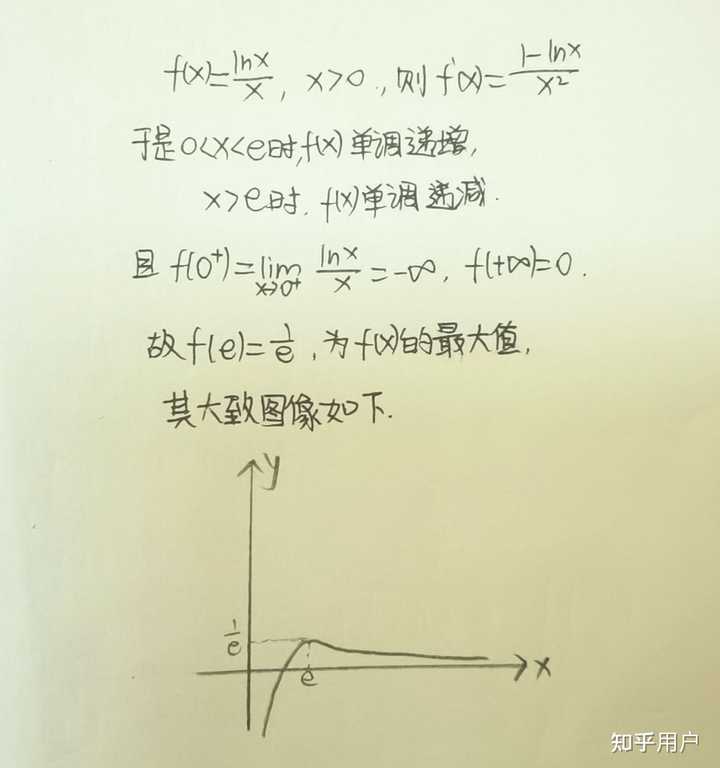 f(x)=lnx/x, x>0, 则f'(x)=(1-lnx)/x²
于是0<x<e时,f(x)单调递增,
x>e时, f(x)单调递减.
且 f(0⁺)=lim x→0⁺ lnx/x=-∞, f(+∞)=0.
故f(e)=1/e, 为f(x)的最大值,
其大致图像如下.
y
1/e
e
x
知乎用户